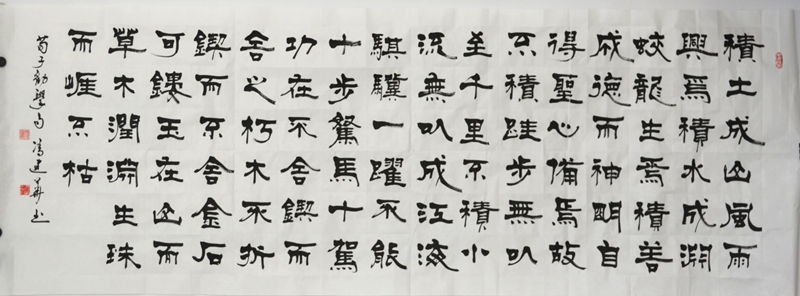 積土成山風雨
興焉積水成淵
蛟龍生焉積善
成德而神明自
得聖心備焉故
不積跬步無以
至千里不積小
流無以成江海
騏驥一躍不能
十步駑馬十駕
功在不舍鍥而
舍之朽木不折
鍥而不舍金石
可鏤玉在山而
草木潤淵生珠
而崕不枯
荀子勸學句 馮建華书